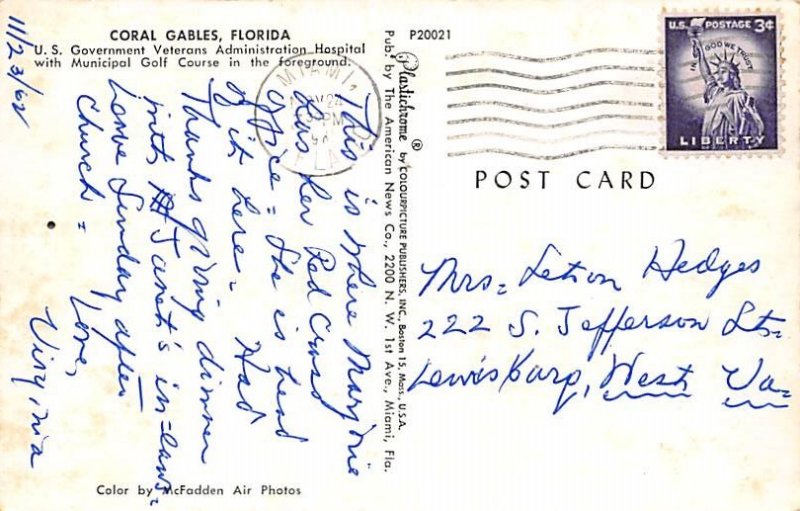 CORAL GABLES, FLORIDA
U. S. Government Veterans Administration Hospital
with Municipal Golf Course in the foreground.
P20021
11/23/62
This is where Marjorie
has her Red Cross
office = She is head
of it here = Had
Thanksgiving dinner
with Janet's in-laws =
Leave Sunday after
Church =
Love,
Virginia
Color by McFadden Air Photos
Plastichrome ® by COLOURPICTURE PUBLISHERS, INC., Boston 15, Mass., U.S.A.
Pub. by The American News Co., 2200 N. W. 1st Ave., Miami, Fla.
MIAMI,
24
PM
FLA
U.S. POSTAGE 3¢
IN GOD WE TRUST
LIBERTY
POST CARD
Mrs = Hedges
222 S. Jefferson St =
Lewisburg, West Va =